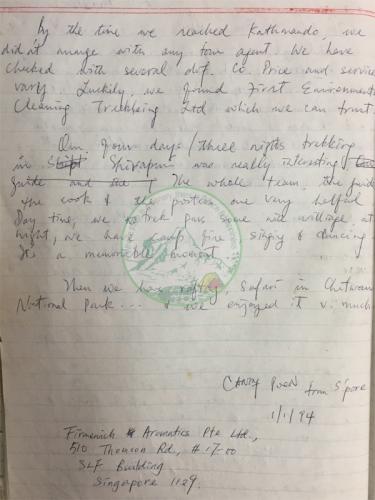 By the time we reached Kathmando, we
didn't arrange with any tour agent. We have
checked with several dif. Co. Price and service
vary. Luckily, we found First Environment
Cleaning Trekking Ltd which we can trust.
Our four days / three nights trekking
in Shivapuri was really interesting,
guide and The whole team, the guide
the cook & the porters are very helpful
Day time, we trek pass some nice village at
night, we have camp fire singing & dancing
It's a memorable moment.
Then we has rafting, safari in Chitwan
National Park... & we enjoyed it v. much
from S'pore
1/1/94
Firmenich Aromatics Pte Ltd.,
510 Thomson Rd, #17-00
SLF Building
Singapore 1129.